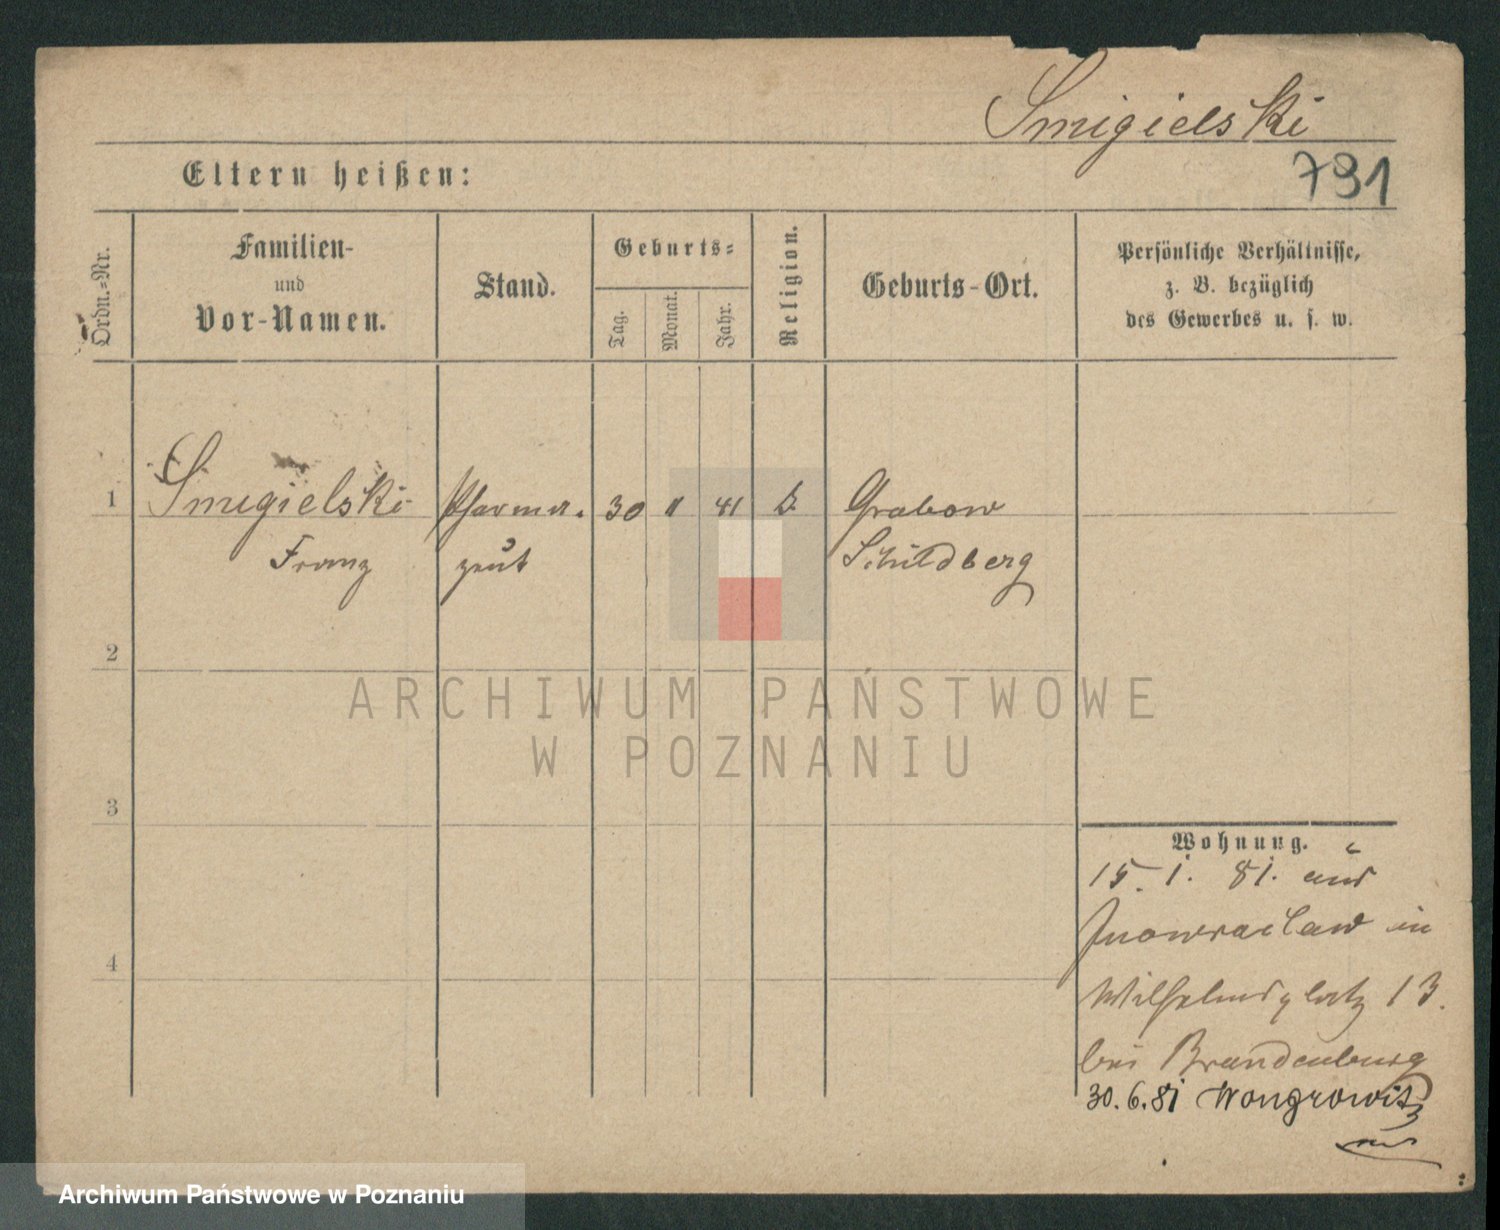 Smigielski
Eltern heißen:
791
Ordn.-Nr.
Familien-
und
Vor-Namen.
Stand.
Geburts-
Tag.
Monat.
Jahr.
Religion.
Geburts-Ort.
Persönliche Verhältnisse,
z. B. bezüglich
des Gewerbes u. s. w.
1
Smigielski
Pharma-
30
11
41
Grabow
Franz
zeut
Schildberg
2
ARCHIWUM PAŃSTWOWE
W POZNANIU
3
Wohnung.
15. 1. 81. aus
Inowraclaw in
Wilhelmsplatz 13.
bei Brandenburg
4
30.6.81 Wongrowitz
Archiwum Państwowe w Poznaniu